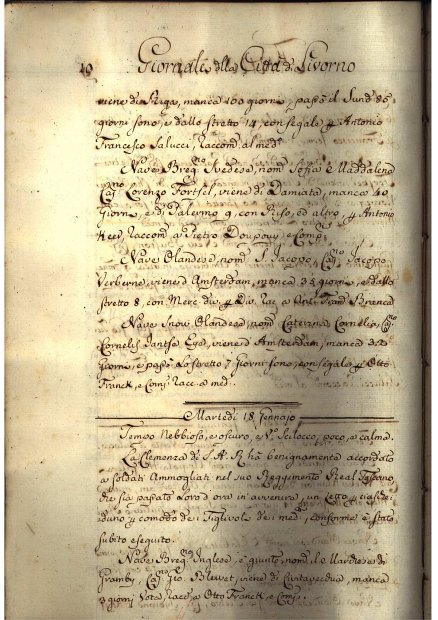 10 Giornale della Città di Livorno
viene di Riga, manca 100 giorni, passò il Sund 85
giorni sono, e dallo stretto 14, con segale p Antonio
Francesco Salucci, Raccom. al med.º
Nave Breg.no Svedese, nom. Sofia e Maddalena
Cap.no Lorenzo Forssel, viene di Damiata, manca 40
Giorni, e di Palermo 9, con Riso, ed altro, p Antonio
Keer, Raccom. a Pietro Doupouy e Comp.
Nave Olandese, nom. S. Jacopo, Cap.no Jacopo
Verberne, viene d Amsterdam, manca 32 giorni, e dallo
stretto 8, con Merc. div. p Div. Rac. a Ant. Fran. Branca
Nave Snow Olandese, nom. Caterina Cornelia Cap.
Cornelis Jantse Ega, viene d Amsterdam, manca
Giorni, e passò Lo stretto 7 Giorni sono, con segale p Otto
Franck, e Comp. Racc. a med.
Martedì 18 Gennajo
Tempo Nebbioso, e oscuro, e V.º Scilocco poco, e calma.
La Clemenza di S. A. R. ha benignamente accordato
a soldati Ammogliati nel suo Reggimento Real Toscano,
che sia passato Loro d ora in avvenire, un Letto p ciasche
duno p comodo de i Figlivoli de i med., conforme è stato
subito eseguito.
Nave Breg.no Inglese, è giunto, nom. Le Mardise di
Gramby, Cap.no Gio. Blewet, viene di Civitavecchia, manca
3 giorni Vota, Racc. a Otto Franck e Comp.